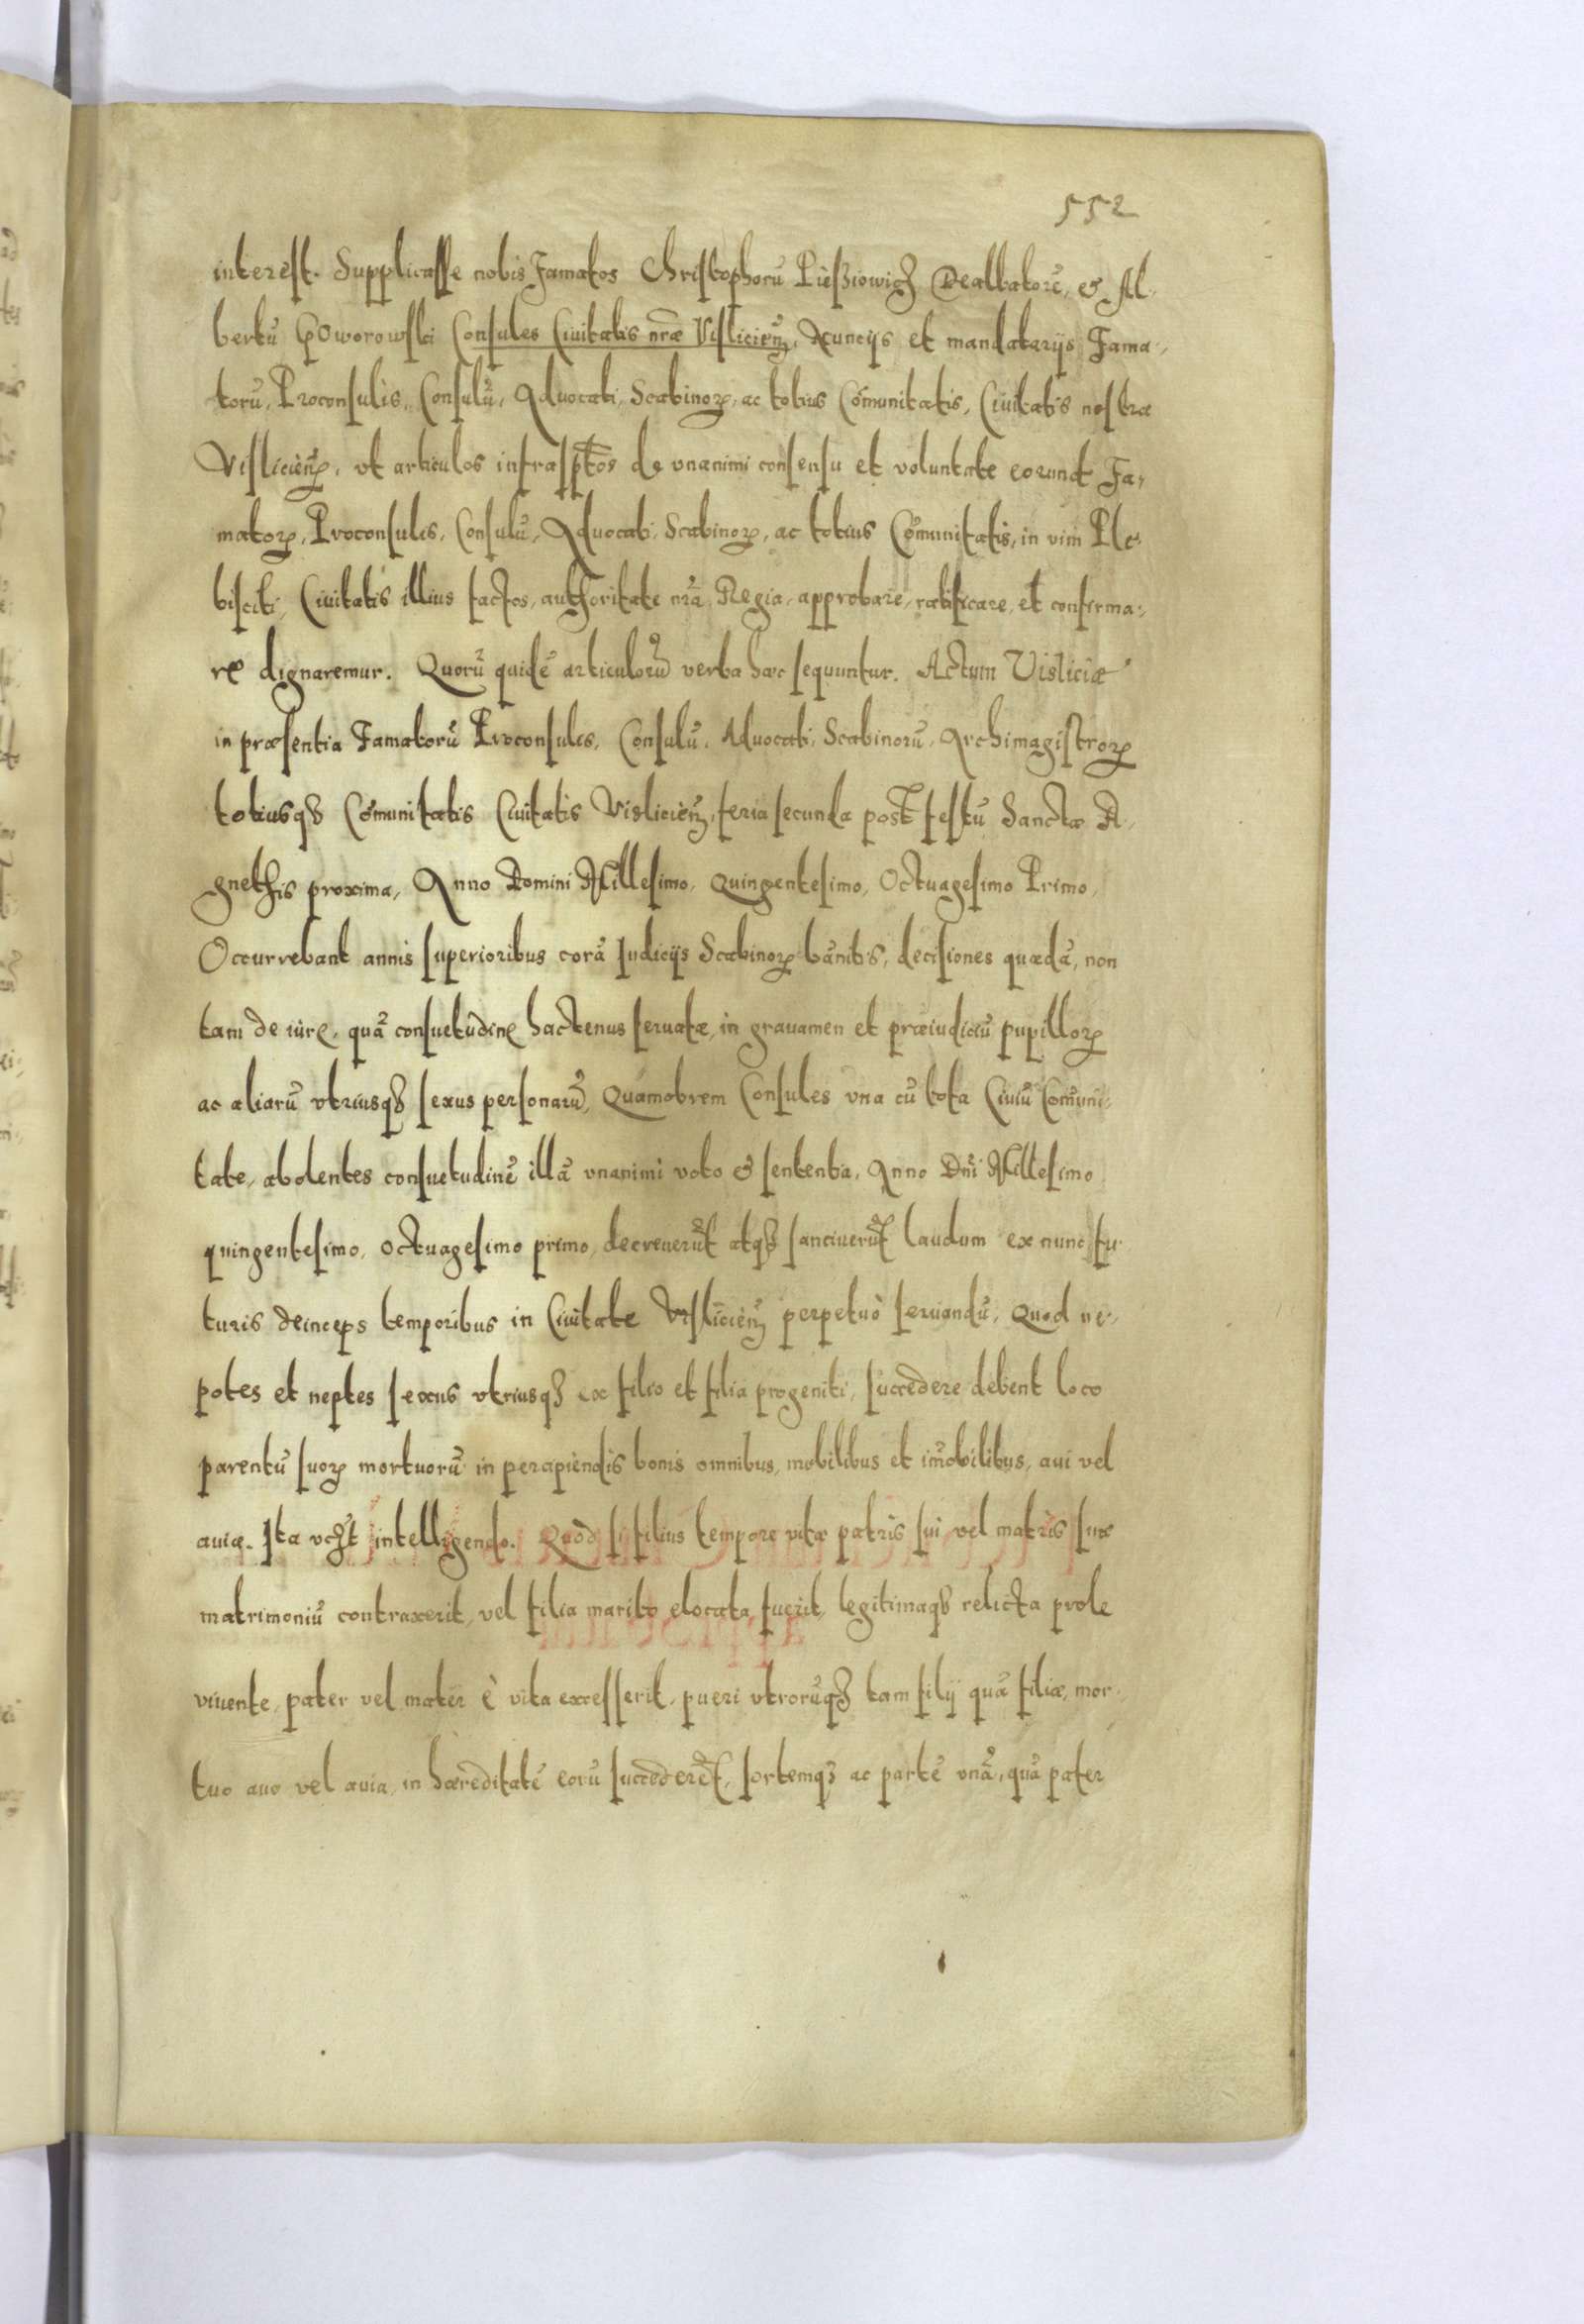 552
interest. Supplicasse nobis Famatos Christophorũ Piesziowicz Dealbatorẽ, & Al-
bertũ Dworowski Consules Ciuitatis nr̃æ Vislicien̄, Nuncijs et mandatarijs Fama-
torũ, Proconsulis, Consulũ, Aduocati, Scabinoꝝ, ac totius Cõmunitatis, Ciuitatis nostræ
Vislicien̄, vt articulos infrasp̃tos de vnanimi consensu et voluntate eorund̃ Fa-
matoꝝ, Proconsulis, Consulũ, Aduocati, Scabinoꝝ, ac totius Cõmunitatis, in vim Ple-
bisciti, Ciuitatis illius factos, authoritate nr̃a Regia, approbare, ratificare, et confirma-
re dignaremur. Quorũ quidẽ articulorũ verba hæc sequuntur. Actum Visliciæ
in præsentia Famatorũ Proconsules, Consulũ, Aduocati, Scabinorũ, Archimagistroꝝ
totiusqꝫ Cõmunitatis Ciuitatis Vislicien̄, feria secunda post festũ Sanctæ A-
gnethis proxima, Anno Domini Millesimo, Quingentesimo, Octuagesimo Primo,
Occurrebant annis superioribus corã Iudicijs Scabinoꝝ bãnitis, decisiones quædã, non
tam de iure, quã consuetudine hactenus seruatæ, in grauamen et præiudiciũ pupilloꝝ
ac aliarũ vtriusqꝫ sexus personarũ, Quamobrem Consules vna cũ tota Ciuiũ Com̃uni-
tate, abolentes consuetudinẽ illã vnanimi voto & sententia, Anno Dn̄i Millesimo
quingentesimo, octuagesimo primo, decreuerũt atqꝫ sanciuerũt laudum ex nunc fu-
turis deinceps temporibus in Ciuitate Vislicien̄ perpetuò seruandũ, Quod ne-
potes et neptes sexus vtriusqꝫ ex filio et filia progeniti, succedere debent loco
parentũ suoꝝ mortuorũ in percipiendis bonis omnibus, mobilibus et im̃obilibus, aui vel
auiæ. Ita vcꝫt intelligendo. Quòd si filius tempore vitæ patris sui vel matris suæ
matrimoniũ contraxerit, vel filia marito elocata fuerit, legitimaqꝫ relicta prole
viuente, pater vel mater è vita excesserit, pueri vtrorũqꝫ tam filij quã filiæ, mor-
tuo auo vel auia, in hæreditatẽ eorũ succederẽt, sortemqꝫ ac partẽ vnã, quã pater